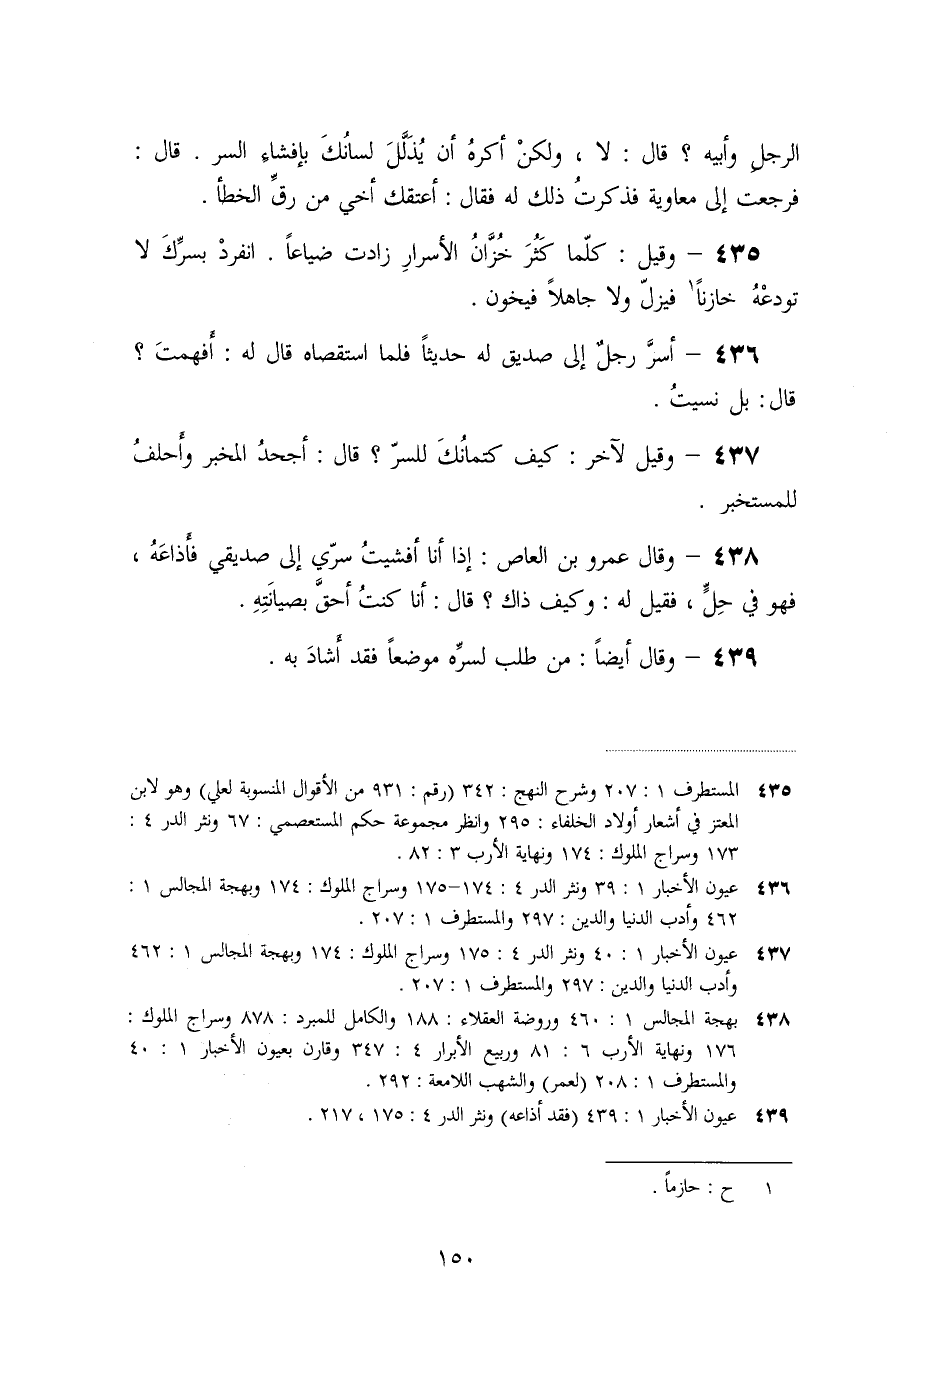 الرجلِ وأبيه ؟ قال : لا ، ولكنْ أكرهُ أن يُذَلَّلَ لسانُكَ بإفشاءِ السر . قال :
فرجعت إلى معاوية فذكرتُ ذلك له فقال : أعتقك أخي من رقِّ الخطأ .
٤٣٥ – وقيل : كلّما كَثُرَ خُزَّانُ الأسرارِ زادت ضياعاً . انفردْ بسرِّكَ لا
تودعْهُ خازناً١ فيزلّ ولا جاهلاً فيخون .
٤٣٦ – أسرَّ رجلٌ إلى صديق له حديثاً فلما استقصاه قال له : أَفهمتَ ؟
قال : بل نسيتُ .
٤٣٧ – وقيل لآخر : كيف كتمانُكَ للسرّ ؟ قال : أجحدُ المخبر وأَحلفُ
للمستخبر .
٤٣٨ – وقال عمرو بن العاص : إذا أنا أفشيتُ سرّي إلى صديقي فأَذاعَهُ ،
فهو في حِلٍّ ، فقيل له : وكيف ذاك ؟ قال : أنا كنتُ أحقَّ بصيانَتِهِ .
٤٣٩ – وقال أيضاً : من طلب لسرِّه موضعاً فقد أَشادَ به .
٤٣٥ المستطرف ١ : ٢٠٧ وشرح النهج : ٣٤٢ (رقم : ٩٣١ من الأقوال المنسوبة لعلي) وهو لابن
المعتز في أشعار أولاد الخلفاء : ٢٩٥ وانظر مجموعة حكم المستعصمي : ٦٧ ونثر الدر ٤ :
١٧٣ وسراج الملوك : ١٧٤ ونهاية الأرب ٣ : ٨٢ .
٤٣٦ عيون الأخبار ١ : ٣٩ ونثر الدر ٤ : ١٧٤–١٧٥ وسراج الملوك : ١٧٤ وبهجة المجالس ١ :
٤٦٢ وأدب الدنيا والدين : ٢٩٧ والمستطرف ١ : ٢٠٧ .
٤٣٧ عيون الأخبار ١ : ٤٠ ونثر الدر ٤ : ١٧٥ وسراج الملوك : ١٧٤ وبهجة المجالس ١ : ٤٦٢
وأدب الدنيا والدين : ٢٩٧ والمستطرف ١ : ٢٠٧ .
٤٣٨ بهجة المجالس ١ : ٤٦٠ وروضة العقلاء : ١٨٨ والكامل للمبرد : ٨٧٨ وسراج الملوك :
١٧٦ ونهاية الأرب ٦ : ٨١ وربيع الأبرار ٤ : ٣٤٧ وقارن بعيون الأخبار ١ : ٤٠
والمستطرف ١ : ٢٠٨ (لعمر) والشهب اللامعة : ٢٩٢ .
٤٣٩ عيون الأخبار ١ : ٤٣٩ (فقد أذاعه) ونثر الدر ٤ : ١٧٥ ، ٢١٧ .
١ ح : حازماً .
١٥٠